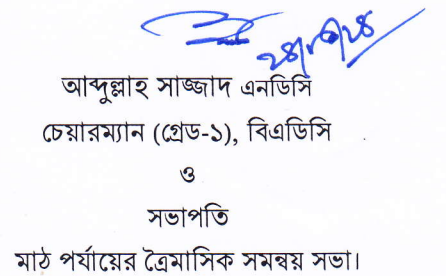 আব্দুল্লাহ সাজ্জাদ এনডিসি
চেয়ারম্যান (গ্রেড-১), বিএডিসি
ও
সভাপতি
মাঠ পর্যায়ের ত্রৈমাসিক সমন্বয় সভা।